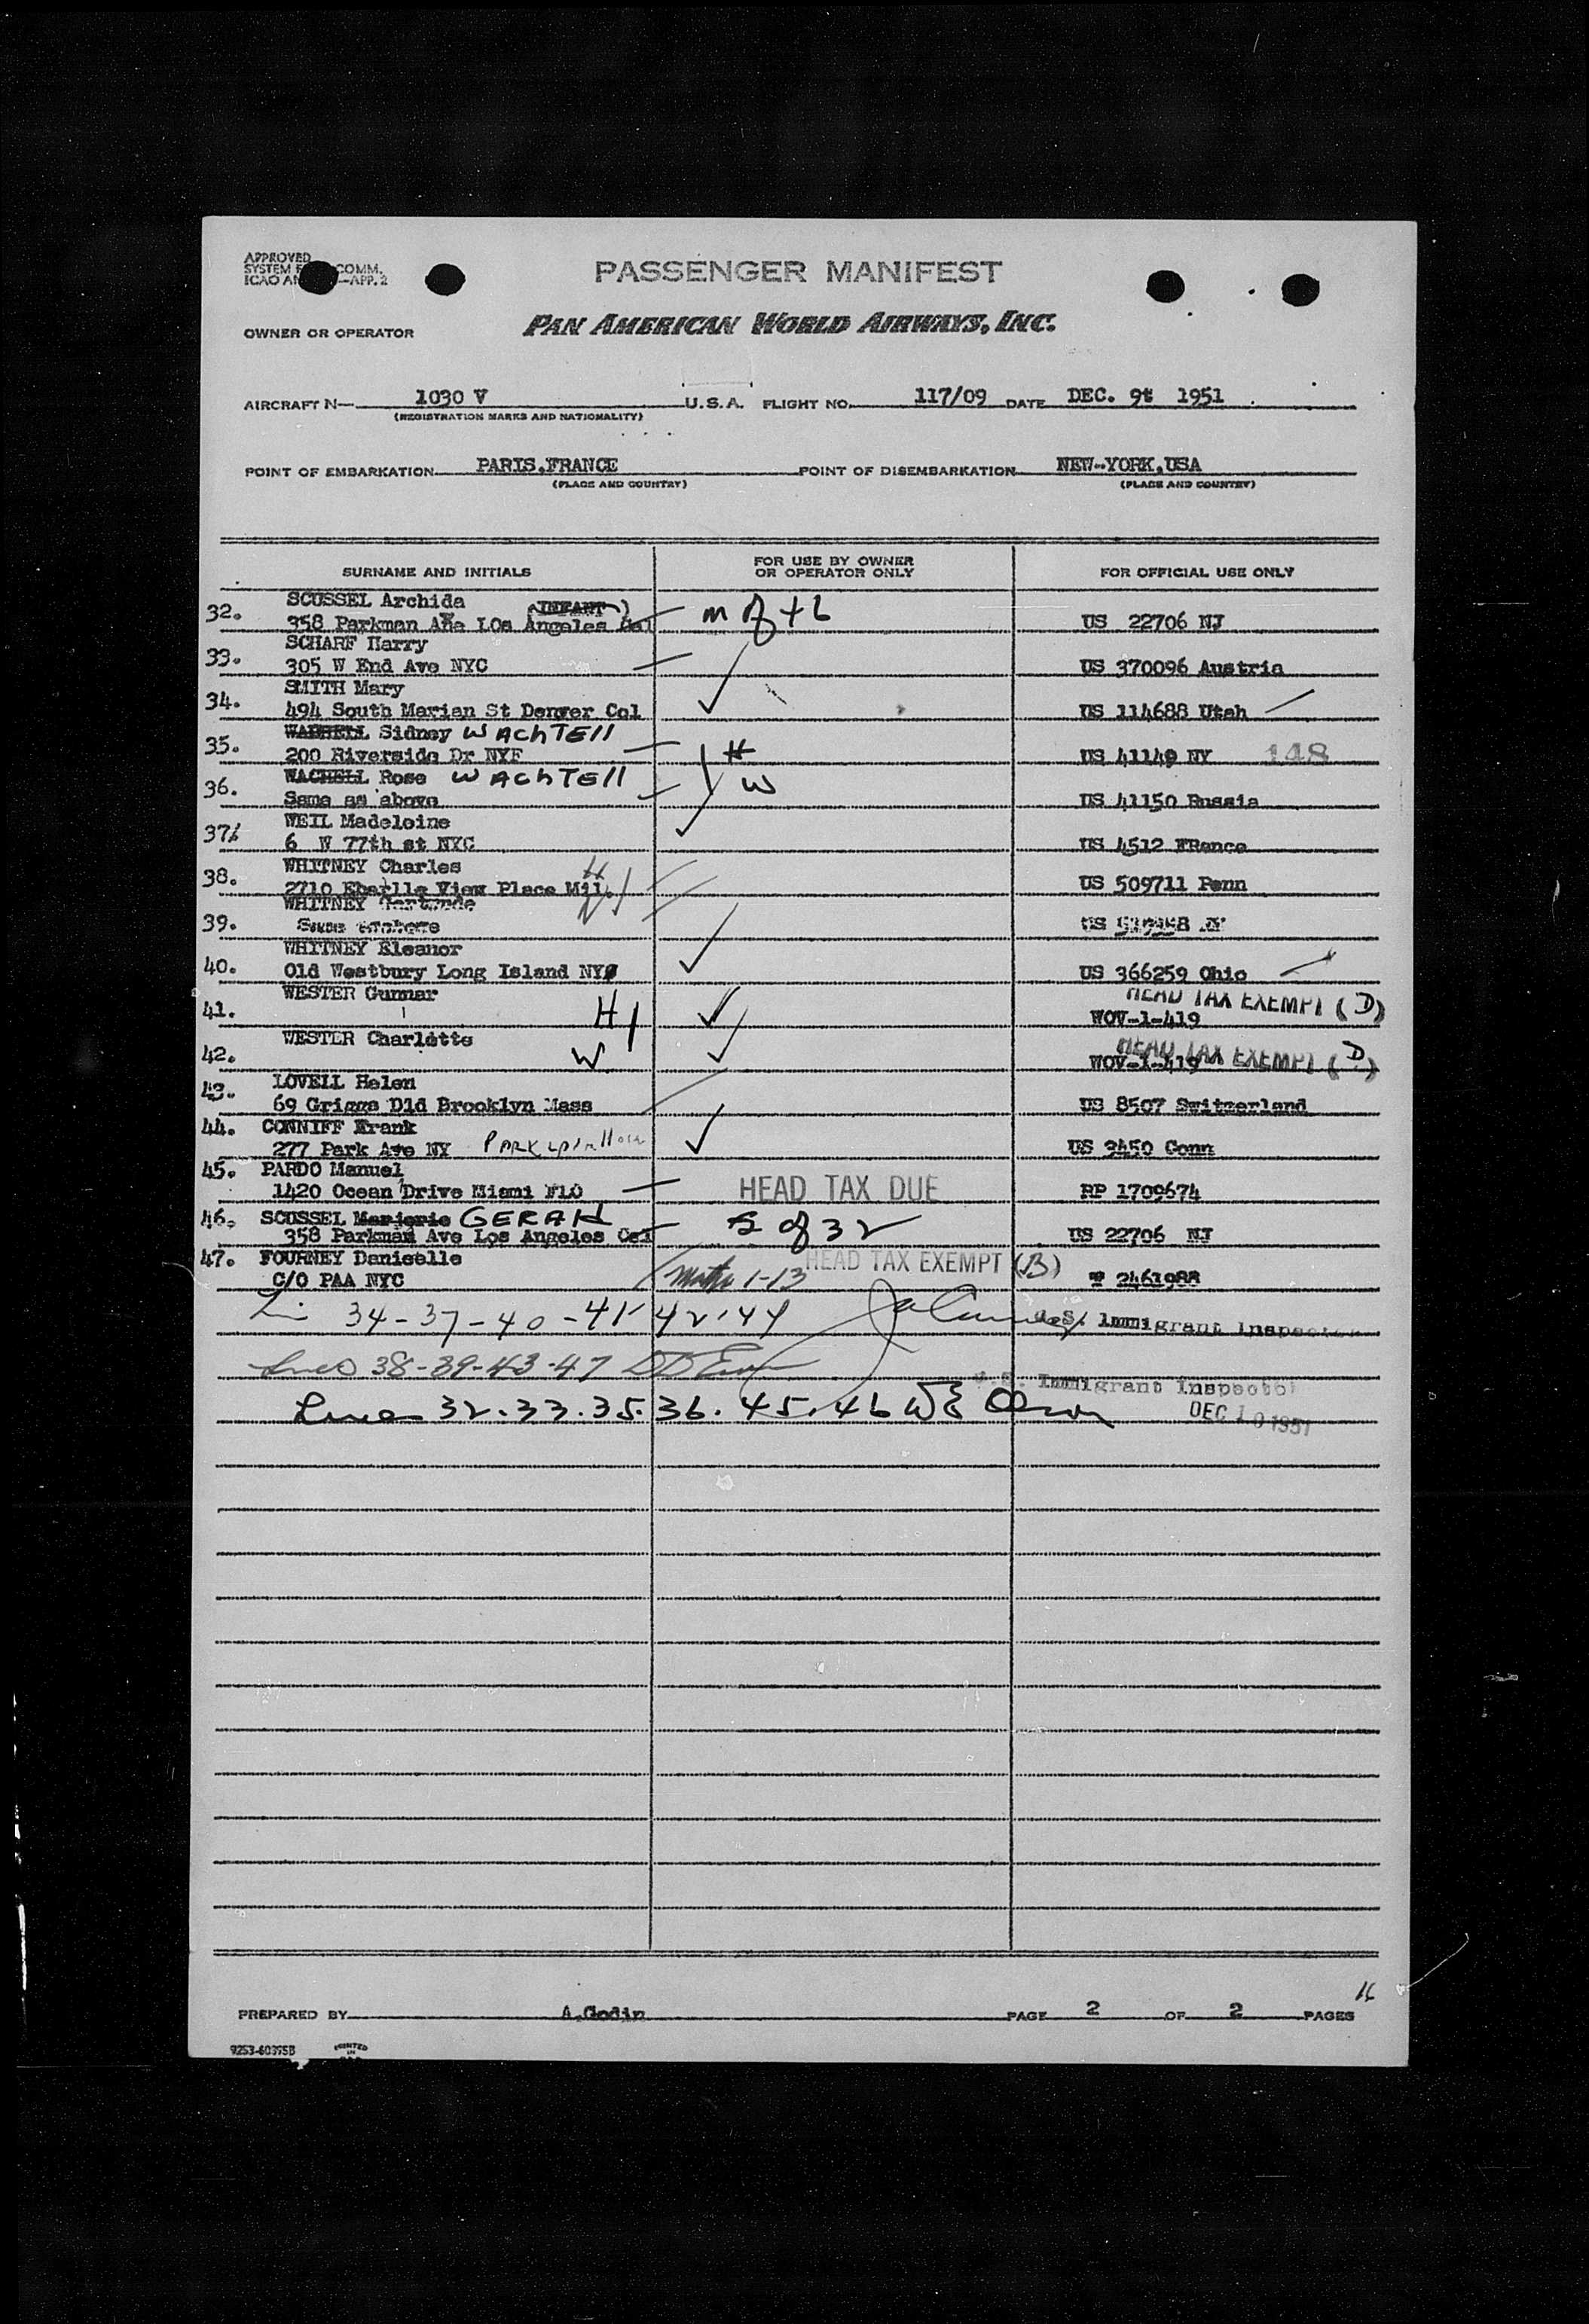 APPROVED
SYSTEM COMM.
ICAO —APP. 2
PASSENGER MANIFEST
OWNER OR OPERATOR PAN AMERICAN WORLD AIRWAYS, INC.
AIRCRAFT N— 1030 V U.S.A. FLIGHT NO. 117/09 DATE DEC. 9t 1951
(REGISTRATION MARKS AND NATIONALITY)
POINT OF EMBARKATION PARIS.FRANCE POINT OF DISEMBARKATION NEW-YORK.USA
(PLACE AND COUNTRY) (PLACE AND COUNTRY)
SURNAME AND INITIALS FOR USE BY OWNER OR OPERATOR ONLY FOR OFFICIAL USE ONLY
SCUSSEL Archida (INFANT)
32. 358 Parkman Ave LOs Angeles Cal m of 46 US 22706 NJ
SCHARF Harry
33. 305 W End Ave NYC US 370096 Austria
SMITH Mary
34. 494 South Marian St Denver Col US 114688 Utah
Sidney WAChTEll
35. 200 Riverside Dr NYF H US 41149 NY 148
WACHELL Rose WAChTEll
36. Same as above W US 41150 Russia
WEIL Madeleine
37. 6 W 77th st NYC US 4512 FRance
WHITNEY Charles H
38. 2710 View Place Mil. W US 509711 Penn
WHITNEY
39. US
WHITNEY Eleanor
40. Old Westbury Long Island NY US 366259 Ohio
WESTER Gunnar HEAD TAX EXEMPT (D)
41. H WOV-1-419
WESTER Charlotte HEAD TAX EXEMPT (D)
42. W WOV-1-419
LOVELL Helen
43. 69 Griggs Dld Brooklyn Mass US 8507 Switzerland
44. CONNIFF Frank
277 Park Ave NY PARK US 3450 Conn
45. PARDO Manuel
1420 Ocean Drive Miami FLO HEAD TAX DUE RP 1709674
46. SCUSSEL Marjorie GERAH
358 Parkman Ave Los Angeles Cal S of 32 US 22706 NJ
47. FOURNEY Danielle HEAD TAX EXEMPT (B)
C/O PAA NYC 1-13 2461988
34-37-40-41-42-44 U.S. Immigrant Inspector
Lines 38-39-43-47
U.S. Immigrant Inspector
Lines 32.33.35.36.45.46
DEC 10 1951
16
PREPARED BY A.Godin PAGE 2 OF 2 PAGES
9253-60395B PRINTED
IN